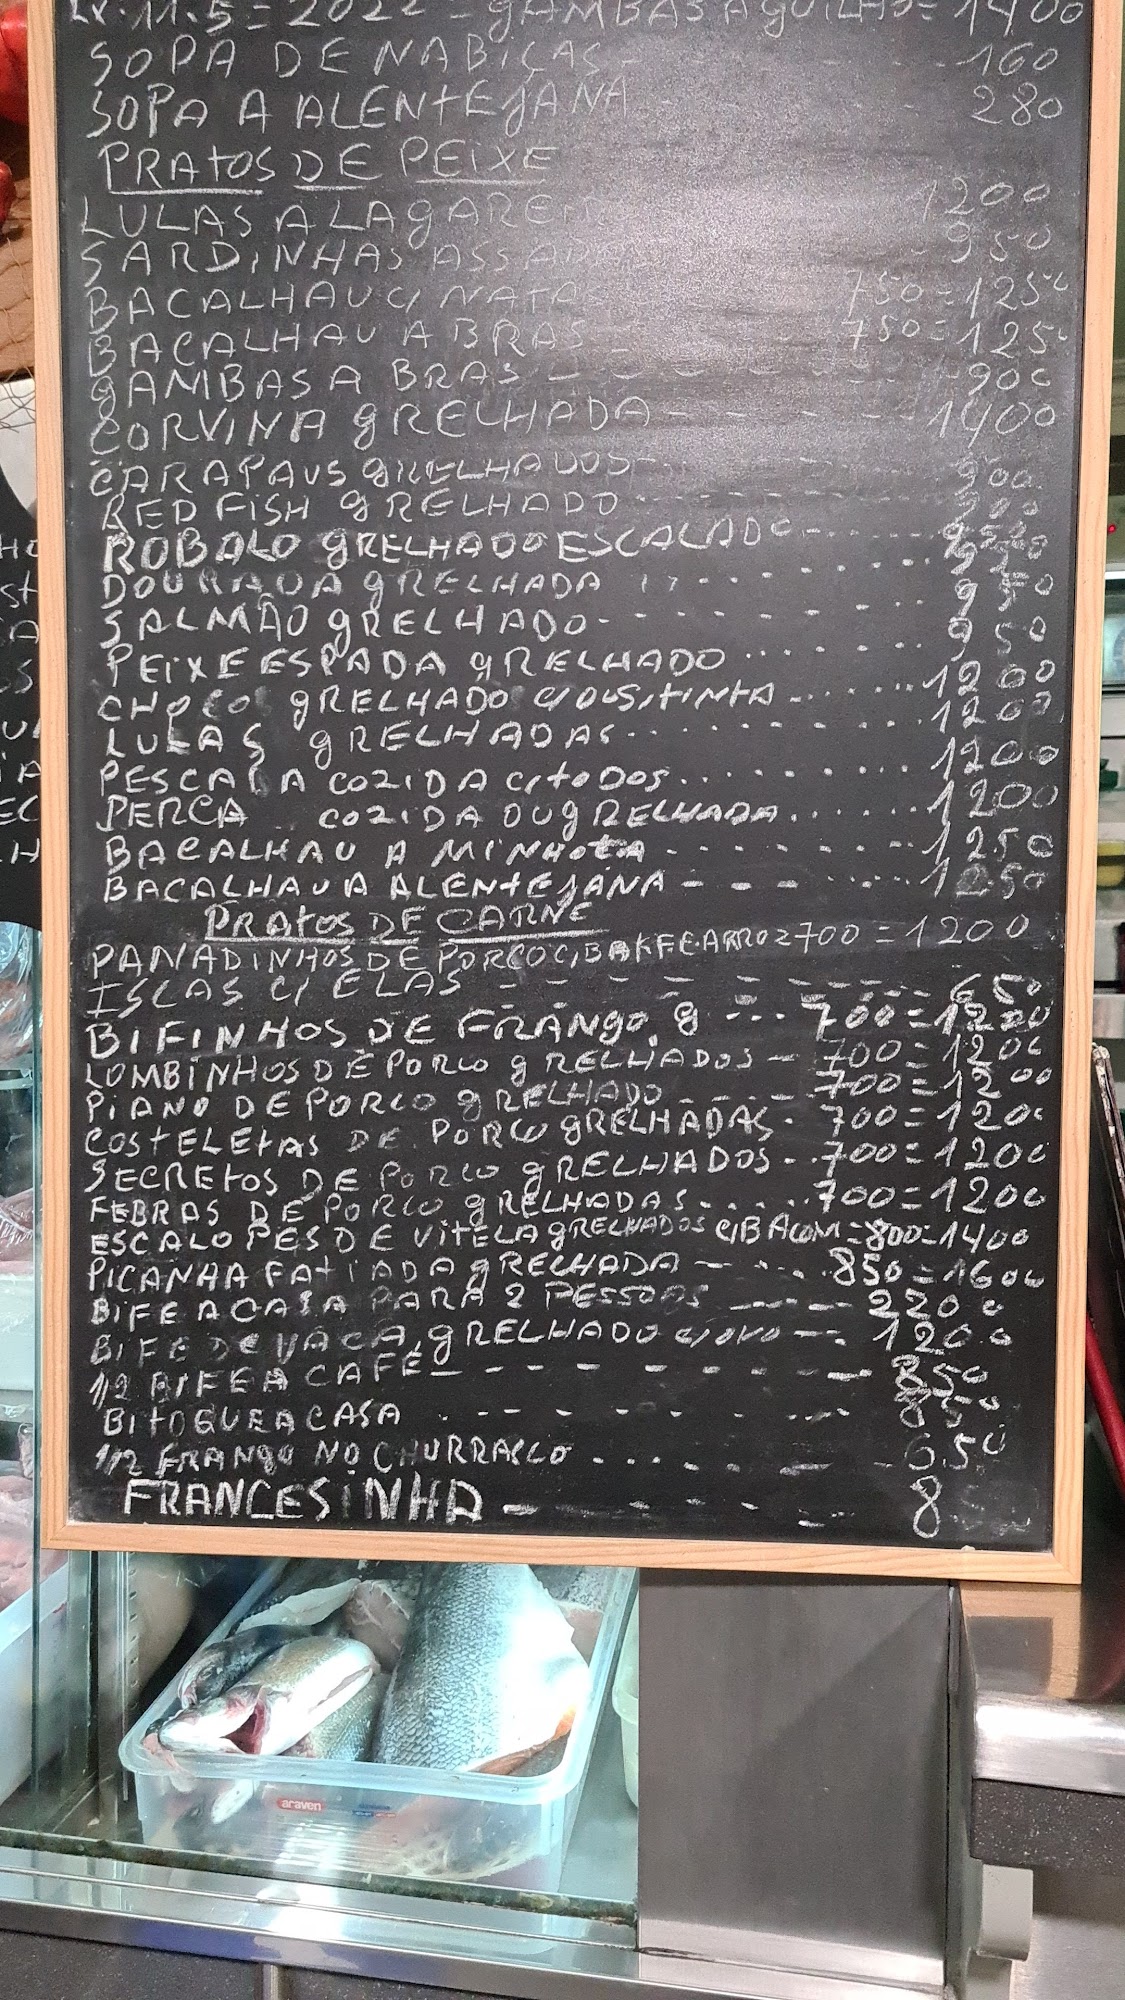 LX.11.5=2022-GAMBAS A GUILHO=1400
SOPA DE NABIÇAS - - - - 160
SOPA A ALENTEJANA - - - 280
PRATOS DE PEIXE
LULAS A LAGAREI 1200
SARDINHAS ASSADAS - 950
BACALHAU C/ NATAS 750=1250
BACALHAU A BRAS - 750=1250
GAMBAS A BRAS - - - - - 900
CORVINA GRELHADA - - - - 1400
CARAPAUS GRELHADOS - - - - 900
RED FISH GRELHADO - - - - 900
ROBALO GRELHADO ESCALADO - - - - 950
DOURADA GRELHADA . . . . . . 950
SALMÃO GRELHADO - - - - - - 950
PEIXE ESPADA GRELHADO . . . . . . 950
CHOCO GRELHADO C/OUS/TINTA . . . . . 1200
LULAS GRELHADAS . . . . . . . 1200
PESCADA COZIDA C/TODOS . . . . . . . 1200
PERCA COZIDA OU GRELHADA . . . . . . 1200
BACALHAU A MINHOTA - - - - - - - 1250
BACALHAU A ALENTEJANA - - - . . . . . 1250
PRATOS DE CARNE
PANADINHOS DE PORCO C/BAKF E ARROZ 700=1200
ISCAS C/ ELAS - - - - - - - - - - 650
BIFINHOS DE FRANGO. G - - - 700=1200
LOMBINHOS DE PORCO GRELHADOS - 700=1200
PIANO DE PORCO GRELHADO - - - - - 700=1200
COSTELETAS DE PORCO GRELHADAS. 700=1200
SECRETOS DE PORCO GRELHADOS - . 700=1200
FEBRAS DE PORCO GRELHADAS . . . . . 700=1200
ESCALOPES DE VITELA GRELHADOS C/BACOM=800=1400
PICANHA FATIADA GRELHADA - - . . . 850=1600
BIFE A CASA PARA 2 PESSOAS - - - - 2200
BIFE DE VACA, GRELHADO C/OVO - - - 1200
1/2 BIFE A CAFÉ - - - - - - - - 850
BITOQUE A CASA . - - - - - - - 850
1/2 FRANGO NO CHURRASCO . . . . . - - 6.50
FRANCESINHA - - - - - - 8
araven